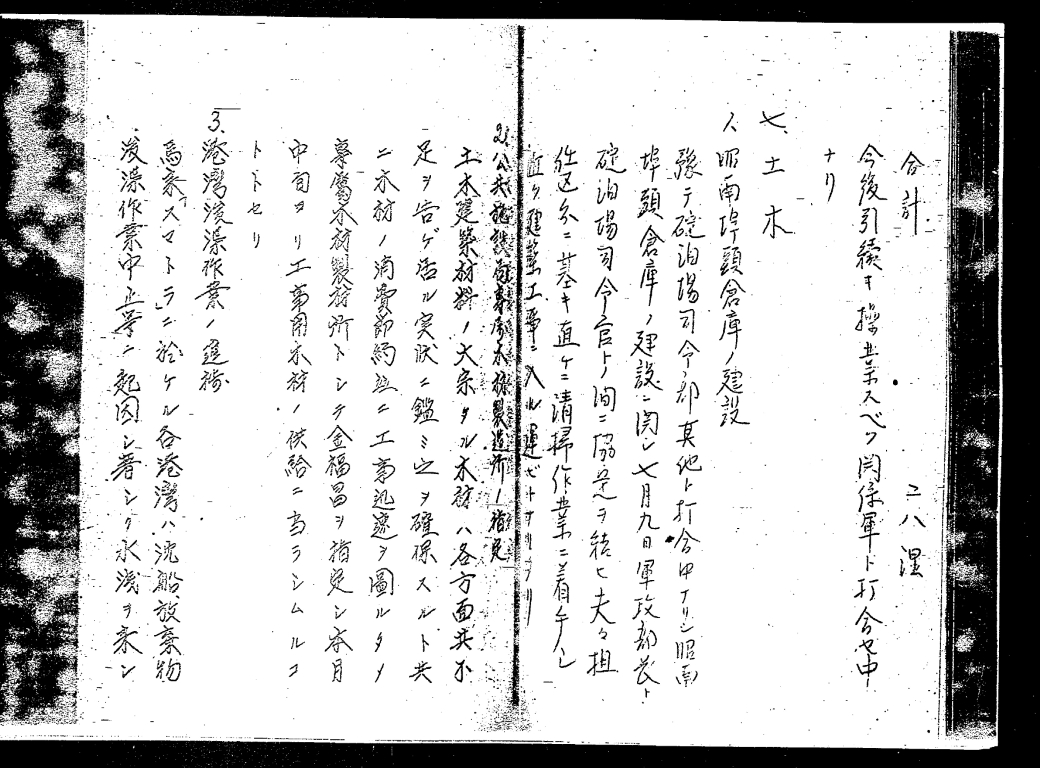 合計 二八浬
今後引續キ操業スベク関係軍ト打合セ中
ナリ
七、土木
1、昭南埠頭倉庫ノ建設
豫テ碇泊場司令部其他ト打合中ナリシ昭南
埠頭倉庫ノ建設ニ関シ七月九日軍政部長ト
碇泊場司令官トノ間ニ協定ヲ結ヒ夫々担
任区分ニ基キ直ケニ清掃作業ニ着手シ
近ク建築工事ニ入ル運ビトナリタリ
2、公共施設 木材製造所ノ指定
土木建築材料ノ大宗タル木材ハ各方面共不
足ヲ告ゲ居ル実状ニ鑑ミ之ヲ確保スルト共
ニ木材ノ消費節約並ニ工事迅速ヲ圖ルタメ
専属木材製材所トシテ金福昌ヲ指定シ本月
中旬ヨリ工事用木材ノ供給ニ当ラシムルコ
トトセリ
3、港灣浚渫作業ノ準備
馬来「スマトラ」ニ於ケル各港灣ハ沈船放棄物
浚渫作業中止等ニ起因シ著シク水浅ヲ来シ